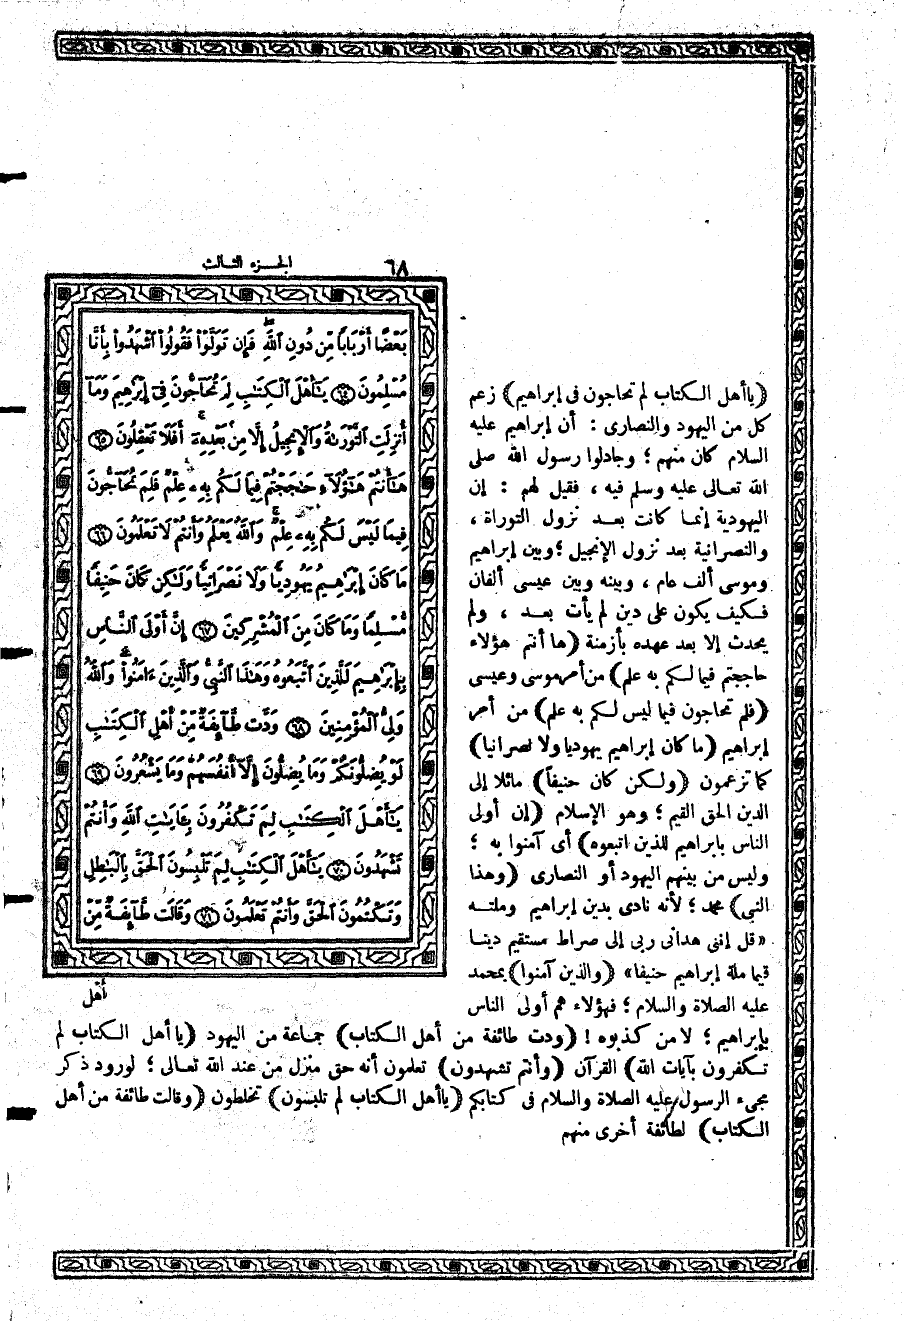 ٦٨
الجزء الثالث
بَعْضًا أَرْبَابًا مِّن دُونِ ٱللَّهِ فَإِن تَوَلَّوْا۟ فَقُولُوا۟ ٱشْهَدُوا۟ بِأَنَّا
مُسْلِمُونَ ٦٤ يَٰٓأَهْلَ ٱلْكِتَٰبِ لِمَ تُحَآجُّونَ فِىٓ إِبْرَٰهِيمَ وَمَآ
أُنزِلَتِ ٱلتَّوْرَىٰةُ وَٱلْإِنجِيلُ إِلَّا مِنۢ بَعْدِهِۦٓ أَفَلَا تَعْقِلُونَ ٦٥
هَٰٓأَنتُمْ هَٰٓؤُلَآءِ حَٰجَجْتُمْ فِيمَا لَكُم بِهِۦ عِلْمٌ فَلِمَ تُحَآجُّونَ
فِيمَا لَيْسَ لَكُم بِهِۦ عِلْمٌ وَٱللَّهُ يَعْلَمُ وَأَنتُمْ لَا تَعْلَمُونَ ٦٦
مَا كَانَ إِبْرَٰهِيمُ يَهُودِيًّا وَلَا نَصْرَانِيًّا وَلَٰكِن كَانَ حَنِيفًا
مُّسْلِمًا وَمَا كَانَ مِنَ ٱلْمُشْرِكِينَ ٦٧ إِنَّ أَوْلَى ٱلنَّاسِ
بِإِبْرَٰهِيمَ لَلَّذِينَ ٱتَّبَعُوهُ وَهَٰذَا ٱلنَّبِىُّ وَٱلَّذِينَ ءَامَنُوا۟ وَٱللَّهُ
وَلِىُّ ٱلْمُؤْمِنِينَ ٦٨ وَدَّت طَّآئِفَةٌ مِّنْ أَهْلِ ٱلْكِتَٰبِ
لَوْ يُضِلُّونَكُمْ وَمَا يُضِلُّونَ إِلَّآ أَنفُسَهُمْ وَمَا يَشْعُرُونَ ٦٩
يَٰٓأَهْلَ ٱلْكِتَٰبِ لِمَ تَكْفُرُونَ بِـَٔايَٰتِ ٱللَّهِ وَأَنتُمْ
تَشْهَدُونَ ٧٠ يَٰٓأَهْلَ ٱلْكِتَٰبِ لِمَ تَلْبِسُونَ ٱلْحَقَّ بِٱلْبَٰطِلِ
وَتَكْتُمُونَ ٱلْحَقَّ وَأَنتُمْ تَعْلَمُونَ ٧١ وَقَالَت طَّآئِفَةٌ مِّنْ
أهل
(ياأهل الكتاب لم تحاجون فى إبراهيم) زعم
كل من اليهود والنصارى : أن إبراهيم عليه
السلام كان منهم ؛ وجادلوا رسول الله صلى
الله تعالى عليه وسلم فيه ، فقيل لهم : إن
اليهودية إنما كانت بعد نزول التوراة ،
والنصرانية بعد نزول الإنجيل ؛ وبين إبراهيم
وموسى ألف عام ، وبينه وبين عيسى ألفان
فكيف يكون على دين لم يأت بعد ، ولم
يحدث إلا بعد عهده بأزمنة (ها أنتم هؤلاء
حاججتم فيما لكم به علم) من أمر موسى وعيسى
(فلم تحاجون فيما ليس لكم به علم) من أمر
إبراهيم (ما كان إبراهيم يهوديا ولا نصرانيا)
كما تزعمون (ولكن كان حنيفاً) مائلا إلى
الدين الحق القيم ؛ وهو الإسلام (إن أولى
الناس بابراهيم للذين اتبعوه) أى آمنوا به ؛
وليس من بينهم اليهود أو النصارى (وهذا
النبي) محمد ؛ لأنه نادى بدين إبراهيم وملته
«قل إننى هدانى ربى إلى صراط مستقيم دينا
قيما ملة إبراهيم حنيفا» (والذين آمنوا) بمحمد
عليه الصلاة والسلام ؛ فهؤلاء هم أولى الناس
بإبراهيم ؛ لا من كذبوه ! (ودت طائفة من أهل الكتاب) جماعة من اليهود (يا أهل الكتاب لم
تكفرون بآيات الله) القرآن (وأنتم تشهدون) تعلمون أنه حق منزل من عند الله تعالى ؛ لورود ذكر
مجىء الرسول عليه الصلاة والسلام فى كتابكم (ياأهل الكتاب لم تلبسون) تخلطون (وقالت طائفة من أهل
الكتاب) لطائفة أخرى منهم